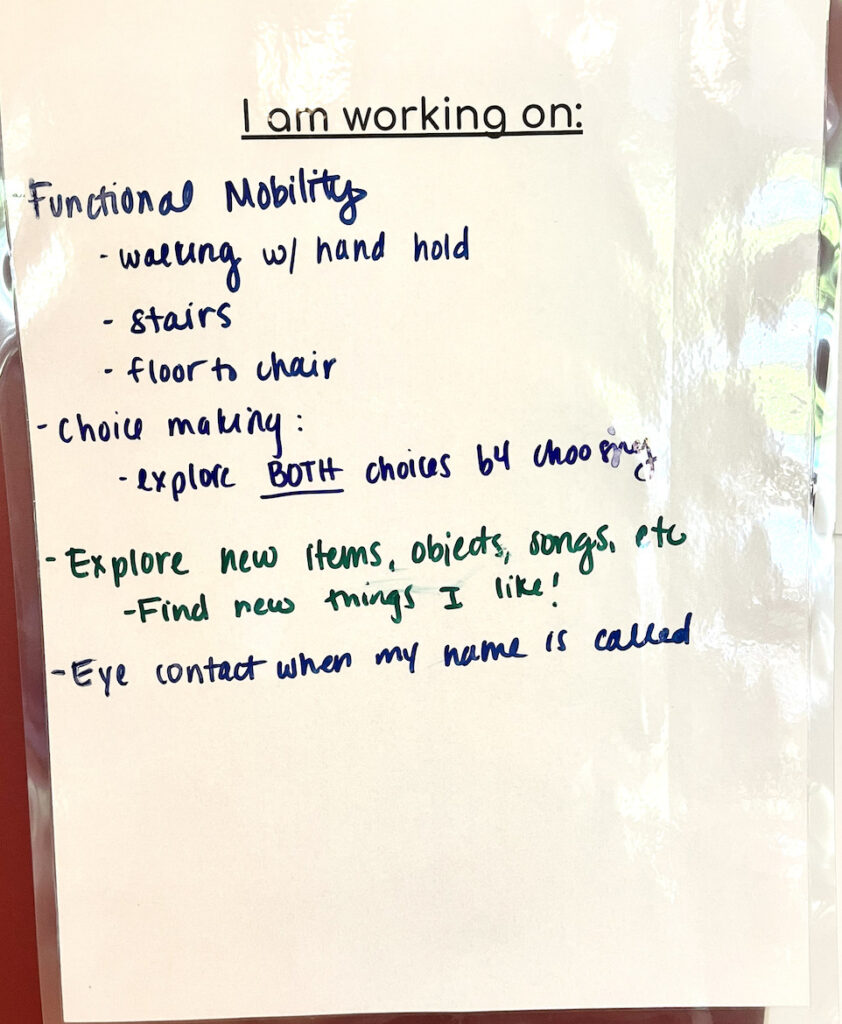 I am working on:
- Functional Mobility
- walking w/ hand hold
- stairs
- floor to chair
- Choice making:
- explore BOTH choices b4 choosing
- Explore new items, objects, songs, etc
- Find new things I like!
- Eye contact when my name is called